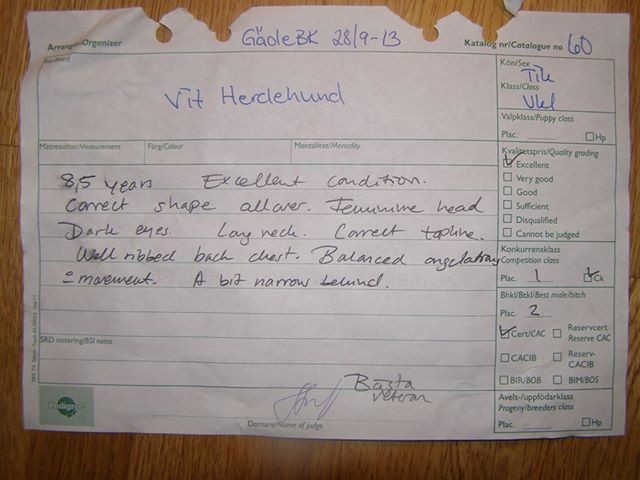 Arrangör/Organizer
GävleBK 28/9-13
Katalog nr/Catalogue no 60
Vit Herdehund
Kön/Sex
Tik
Klass/Class
Vkl
Valpklass/Puppy class
Plac. Hp
Mätresultat/Measurement Färg/Colour Mentalitet/Mentality
Kvalitetspris/Quality grading
Excellent
Very good
Good
Sufficient
Disqualified
Cannot be judged
8,5 years Excellent condition.
Correct shape allover. Feminine head
Dark eyes. Long neck. Correct topline.
Well ribbed back chest. Balanced angulation
= movement. A bit narrow behind.
Konkurrensklass
Competition class
Plac. 1 Ck
Bhkl/Btkl/Best male/bitch
Plac. 2
Cert/CAC Reservcert
Reserve CAC
CACIB Reserv-
CACIB
BIR/BOB BIM/BOS
Avels-/uppfödarklass
Progeny/breeders class
Plac. Hp
SRD notering/BSI notes
Pedigree
Bästa
veteran
Domare/Name of judge